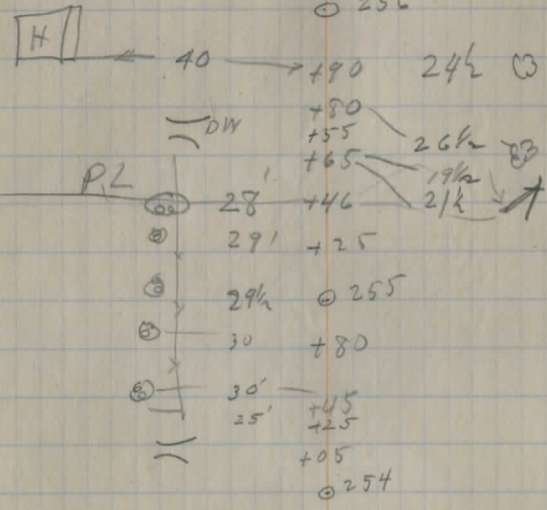 256
H 40 +90 24½
+80
DW +55 26½
+65 19½
PL 28' +46 21½
29' +25
29½ 255
30 +80
30' +45
25' +25
+05
254